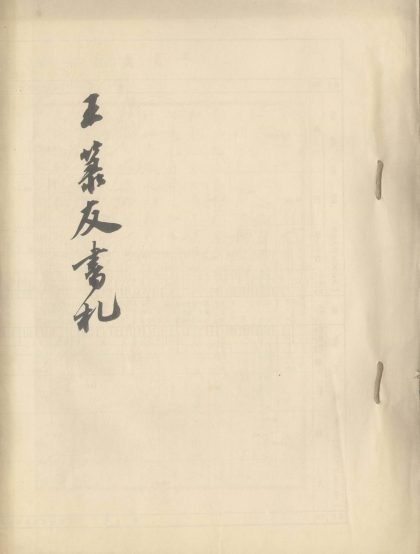 王菉友書札